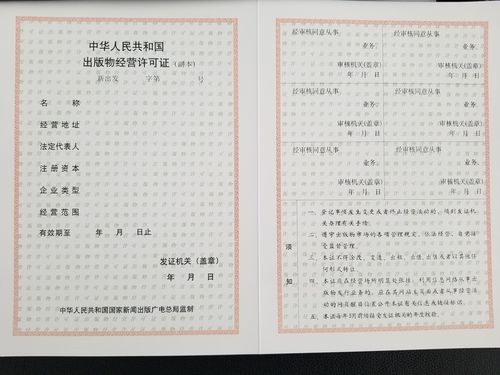 中华人民共和国
出版物经营许可证（副本）
新出发 字第 号
名称
经营地址
法定代表人
注册资本
企业类型
经营范围
有效期至 年 月 日止
发证机关（盖章）
年 月 日
中华人民共和国国家新闻出版广电总局监制
经审核同意从事
业务。
审核机关(盖章)
年 月 日
经审核同意从事
业务。
审核机关(盖章)
年 月 日
经审核同意从事
业务。
审核机关(盖章)
年 月 日
经审核同意从事
业务。
审核机关(盖章)
年 月 日
经审核同意从事
业务。
审核机关(盖章)
年 月 日
经审核同意从事
业务。
审核机关(盖章)
年 月 日
须知
一、登记事项发生变更或者终止经营活动的，须到发证机
关办理有关手续。
二、遵守出版物市场的各项管理规定，依法经营，自觉接
受监督管理。
三、本证不得涂改、变造、出租、出借、出售或者以其他任
何形式转让。
四、本证应在经营场所明显处张挂；利用信息网络从事出
版物发行业务的，应在其网站主页面或者从事经营活
动的网页醒目位置公开本证有关信息或链接标识。
五、本证每年3月前须接受发证机关的年度核验。